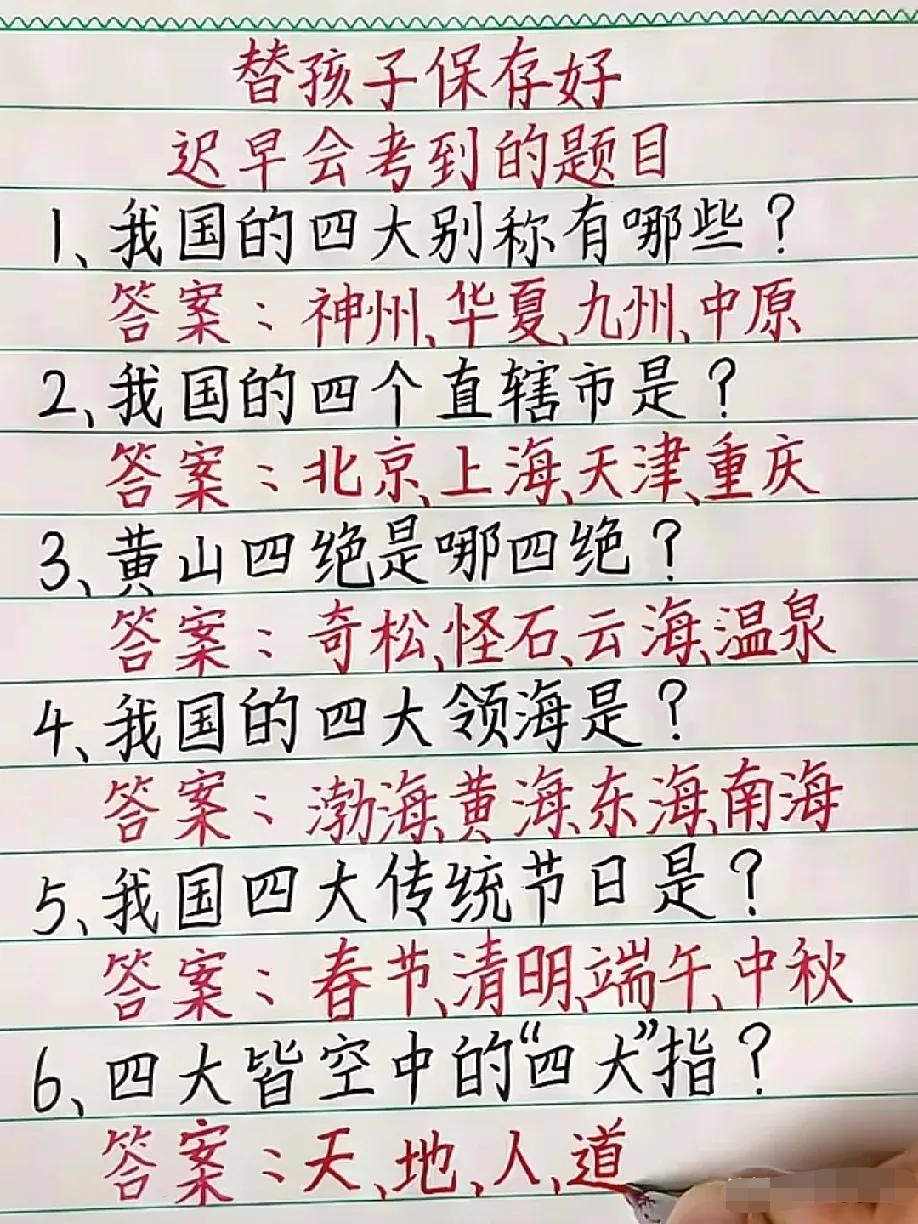 替孩子保存好
迟早会考到的题目
1、我国的四大别称有哪些?
答案:神州、华夏、九州、中原
2、我国的四个直辖市是?
答案:北京、上海、天津、重庆
3、黄山四绝是哪四绝?
答案:奇松、怪石、云海、温泉
4、我国的四大领海是?
答案:渤海、黄海、东海、南海
5、我国四大传统节日是?
答案:春节、清明、端午、中秋
6、四大皆空中的“四大”指?
答案:天、地、人、道